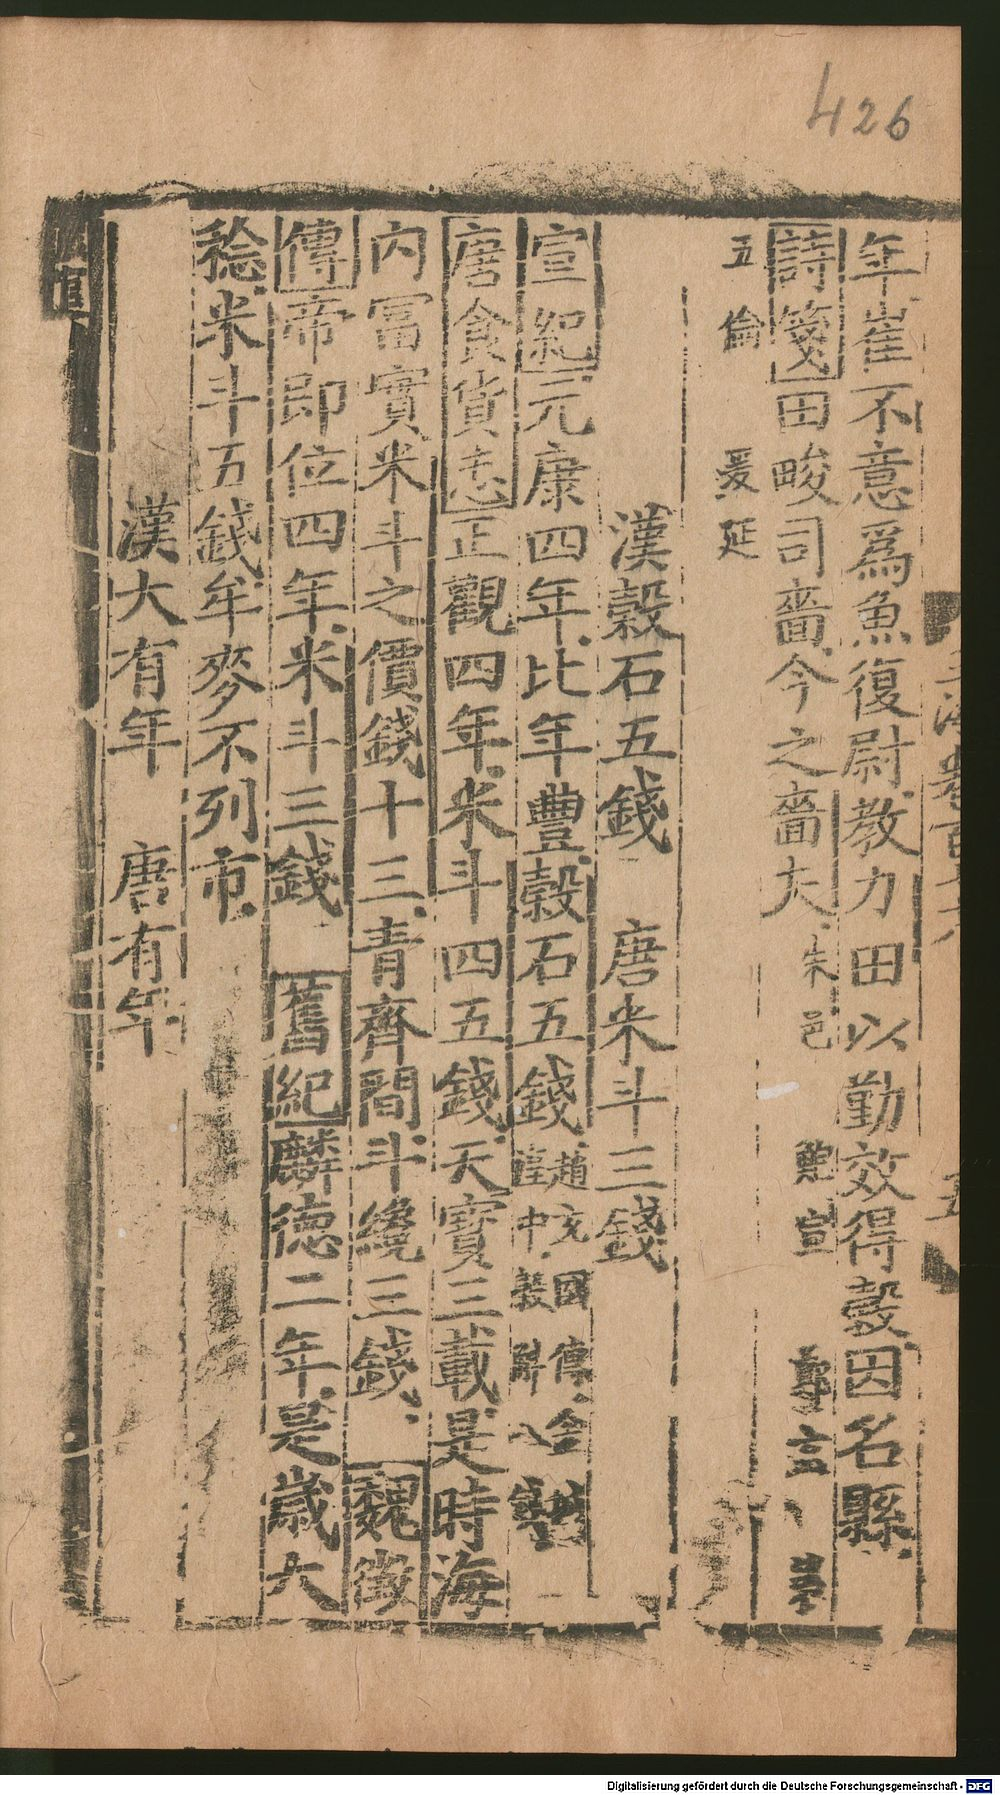 426
年崔不意爲魚復尉教力田以勤效得穀因名縣
詩箋田畯司嗇今之嗇夫朱邑 鮑宣
五倫 爰延
漢穀石五錢 唐米斗三錢
宣紀元康四年比年豐穀石五錢趙充國傳金
湟中穀斛八
唐食貨志正觀四年米斗四五錢天寶三載是時海
內富實米斗之價錢十三青齊間斗纔三錢 魏徵
傳帝即位四年米斗三錢 舊紀麟德二年是歲大
稔米斗五錢牟麥不列市
漢大有年 唐有年
Digitalisierung gefördert durch die Deutsche Forschungsgemeinschaft - DFG